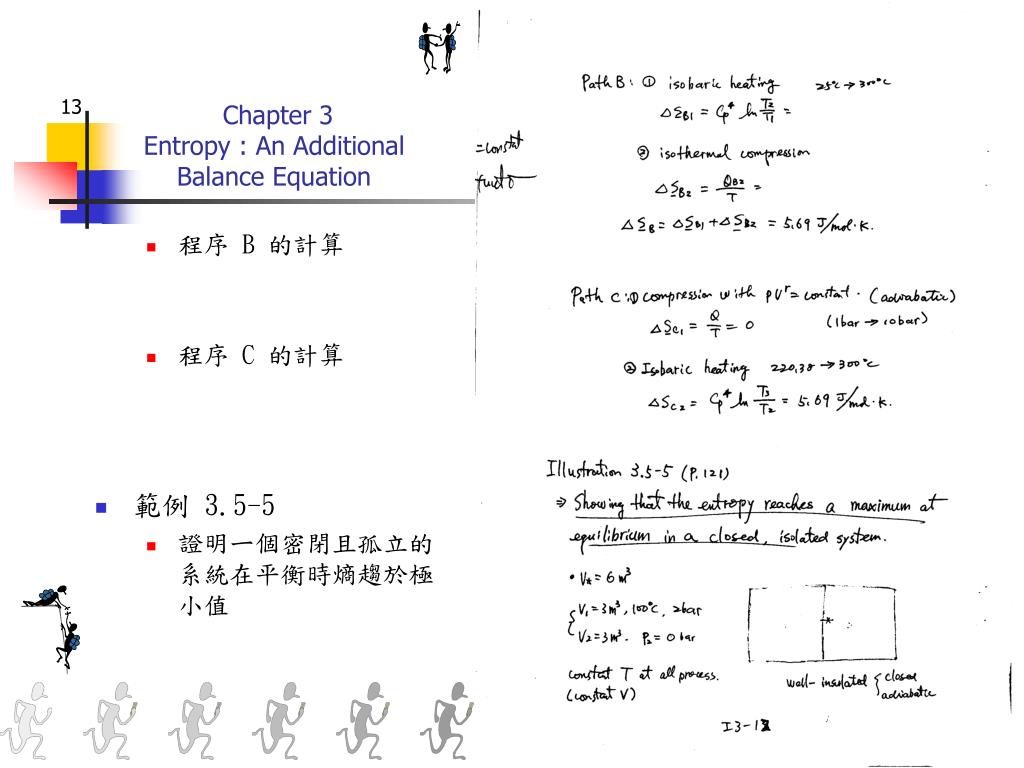 13
Chapter 3
Entropy : An Additional
Balance Equation
程序 B 的計算
程序 C 的計算
範例 3.5-5
證明一個密閉且孤立的
系統在平衡時熵趨於極
小值
=constat
Path B: ① isobaric heating 25°c → 300°c
ΔS_B1 = Cp* ln T2/T1 =
② isothermal compression
ΔS_B2 = Q_B2/T =
ΔS_B = ΔS_B1 + ΔS_B2 = 5.69 J/mol·K.
Path C: ① compression with PV^r = constant. (adiabatic)
ΔS_C1 = Q/T = 0 (1bar → 10bar)
② Isobaric heating 220.38 → 300°c
ΔS_C2 = Cp* ln T3/T2 = 5.69 J/mol·K.
Illustration 3.5-5 (P.121)
⇒ Showing that the entropy reaches a maximum at
equilibrium in a closed, isolated system.
• V* = 6 m³
V1 = 3m³, 100°c, 2bar
V2 = 3m³. P2 = 0 bar
*
constat T at all process.
(constat V)
well-insulated { closed
adiabatic
I3-12